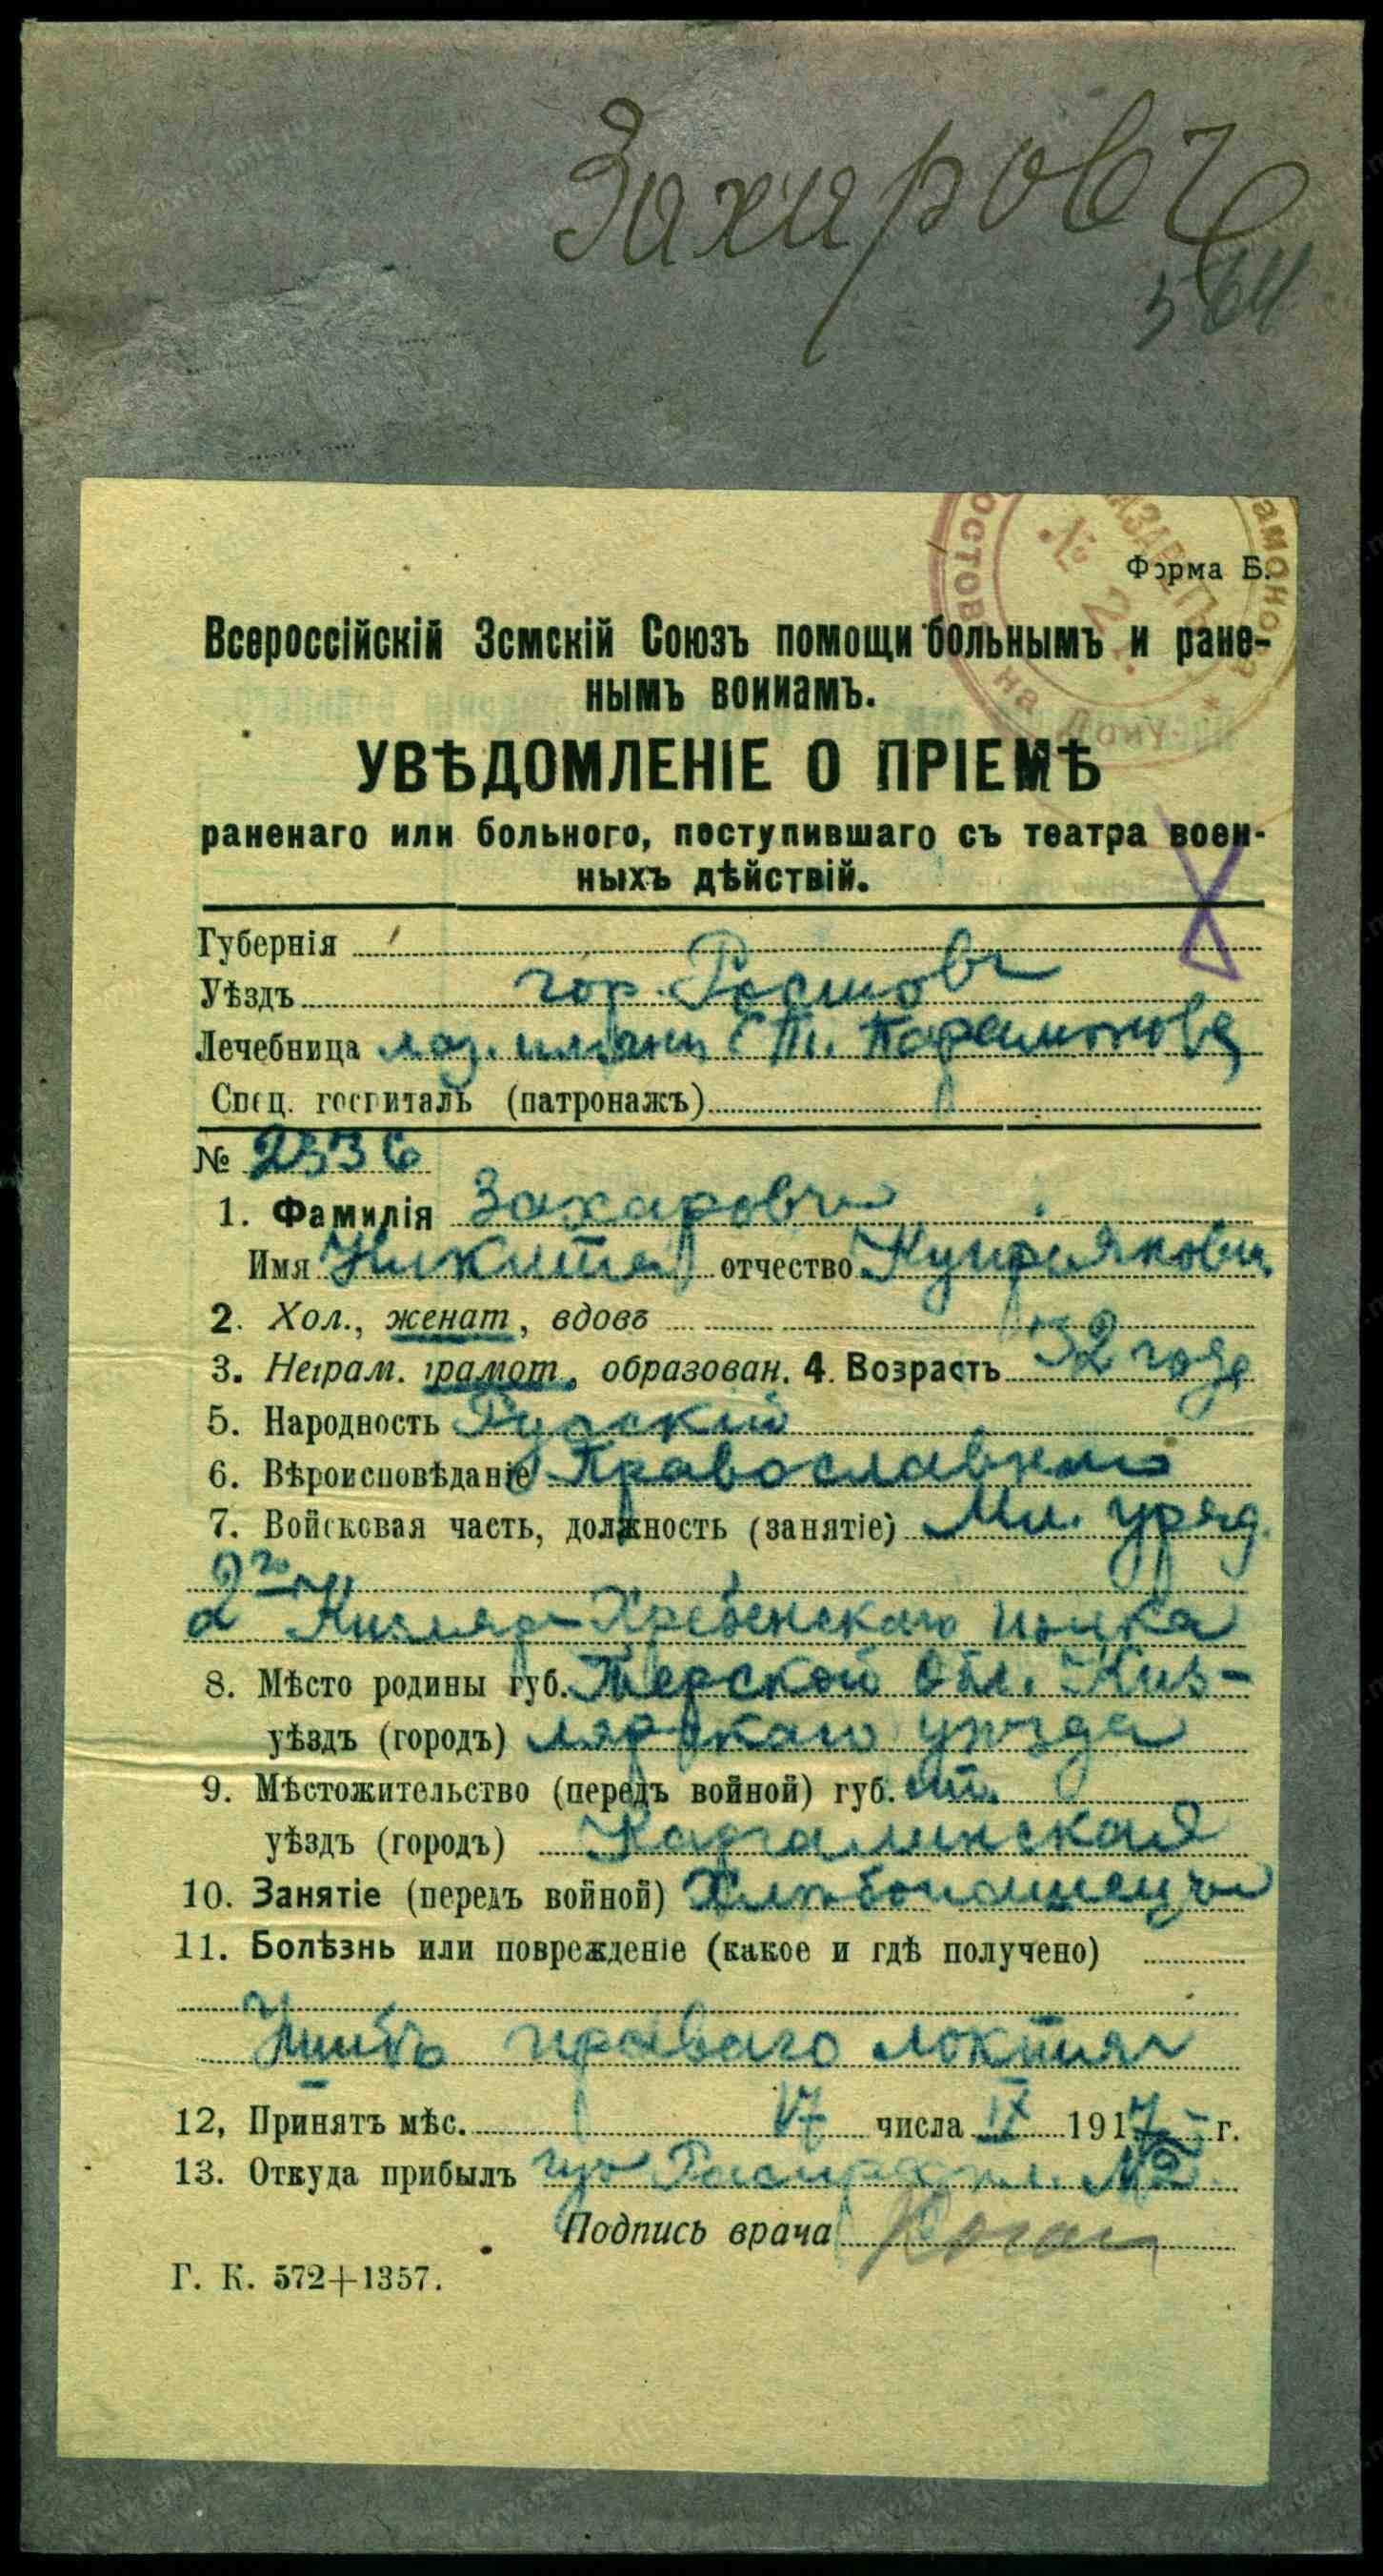 Захаровъ
564
Форма Б.
Всероссійскій Земскій Союзъ помощи больнымъ и ране-
нымъ воинамъ.
УВѢДОМЛЕНІЕ О ПРІЕМѢ
раненаго или больного, поступившаго съ театра воен-
ныхъ дѣйствій.
Губернія
Уѣздъ гор. Ростовъ
Лечебница лаз. имени Парамонова
Спец. госпиталь (патронажъ)
№ 2336
1. Фамилія Захаровъ
Имя Никита отчество Купріяновъ
2. Хол., женат, вдовъ
3. Неграм. грамот, образован. 4. Возрастъ 32 года
5. Народность Русскій
6. Вѣроисповѣданіе Православный
7. Войсковая часть, должность (занятіе) Мл. уряд.
2го Кизляр-Гребенскаго полка
8. Мѣсто родины губ. Терской Обл. Киз-
уѣздъ (городъ) лярскаго уѣзда
9. Мѣстожительство (передъ войной) губ. ст.
уѣздъ (городъ) Каргалинская
10. Занятіе (передъ войной) Хлѣбопашецъ
11. Болѣзнь или поврежденіе (какое и гдѣ получено)
Ушибъ праваго локтя
12, Принятъ мѣс. 17 числа IX 1917 г.
13. Откуда прибылъ изъ №2
Подпись врача
Г. К. 572+1357.